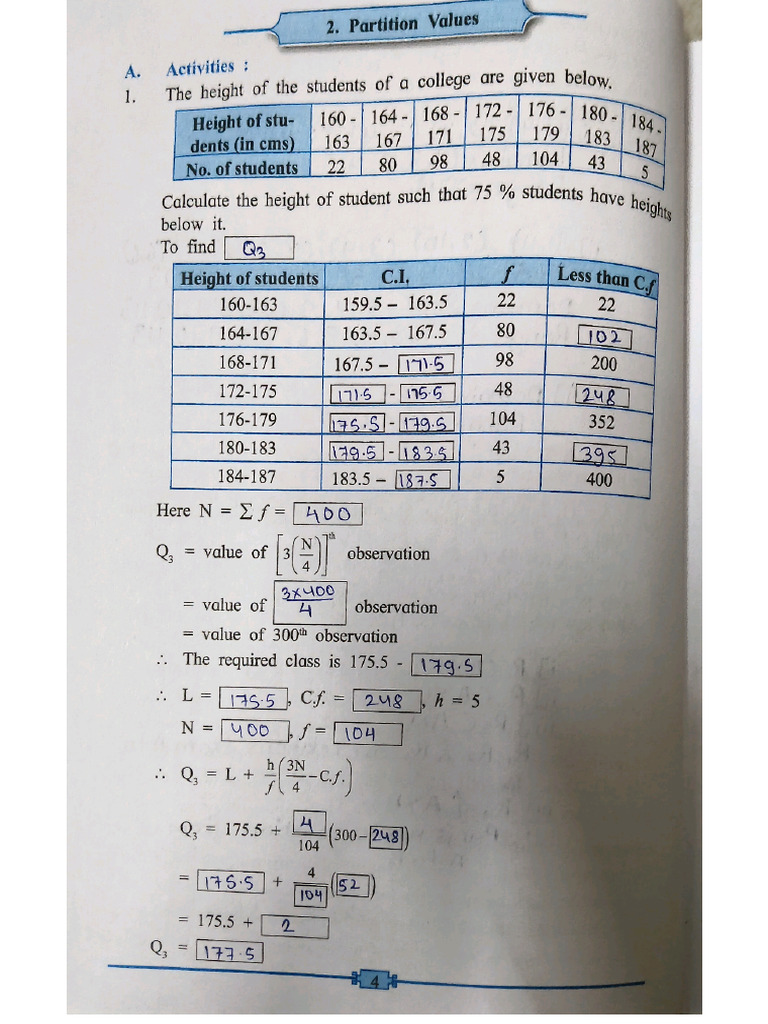 2. Partition Values
A. Activities :
1. The height of the students of a college are given below.
Height of stu- 160 - 164 - 168 - 172 - 176 - 180 - 184 -
dents (in cms) 163 167 171 175 179 183 187
No. of students 22 80 98 48 104 43 5
Calculate the height of student such that 75 % students have heights
below it.
To find Q₃
Height of students C.I. f Less than C.f
160-163 159.5 – 163.5 22 22
164-167 163.5 – 167.5 80 102
168-171 167.5 – 171.5 98 200
172-175 171.5 - 175.5 48 248
176-179 175.5 - 179.5 104 352
180-183 179.5 - 183.5 43 395
184-187 183.5 – 187.5 5 400
Here N = Σ f = 400
Q₃ = value of [3(N/4)]th observation
= value of 3×400/4 observation
= value of 300th observation
∴ The required class is 175.5 - 179.5
∴ L = 175.5, C.f. = 248, h = 5
N = 400, f = 104
∴ Q₃ = L + h/f (3N/4 – C.f.)
Q₃ = 175.5 + 4/104 (300 – 248)
= 175.5 + 4/104 (52)
= 175.5 + 2
Q₃ = 177.5
4